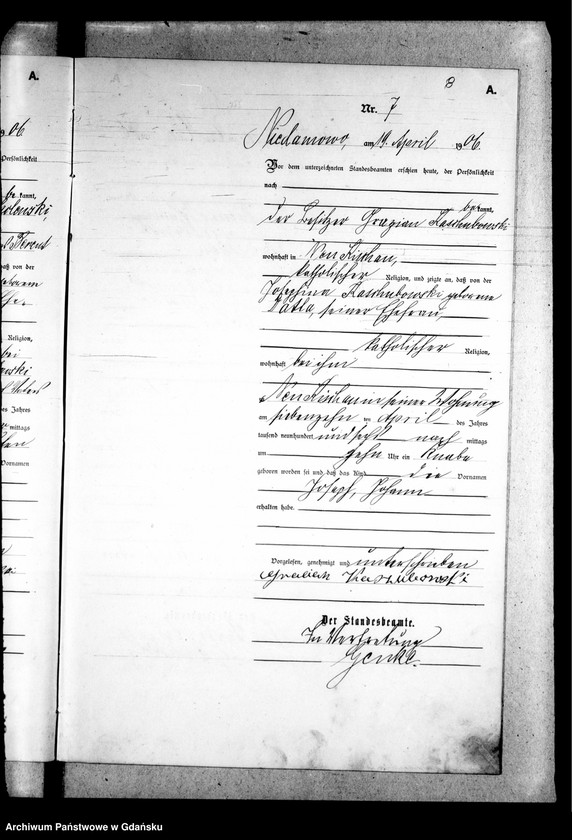 A.
8
A.
Nr. 7
Niedamowo, am 19. April 1906.
Vor dem unterzeichneten Standesbeamten erschien heute, der Persönlichkeit
nach
be kannt,
der Besitzer Gracian Kaschubowski
wohnhaft in Neu Kischau,
katholischer Religion, und zeigte an, daß von der
Josephina Kaschubowski geborene
seiner Ehefrau,
katholischer Religion,
wohnhaft bei ihm
Neu Kischau in seiner Wohnung
am siebenzehn ten April des Jahres
tausend neunhundert und sechs nach mittags
um zehn Uhr ein Knabe
geboren worden sei und daß das Kind die Vornamen
Joseph, Johann
erhalten habe.
Vorgelesen, genehmigt und unterschrieben
Kaszubowski
Der Standesbeamte.
In Vertretung
906.
Persönlichkeit
be kannt,
daß von der
Religion,
bei
des Jahres
mittags
Vornamen
Archiwum Państwowe w Gdańsku